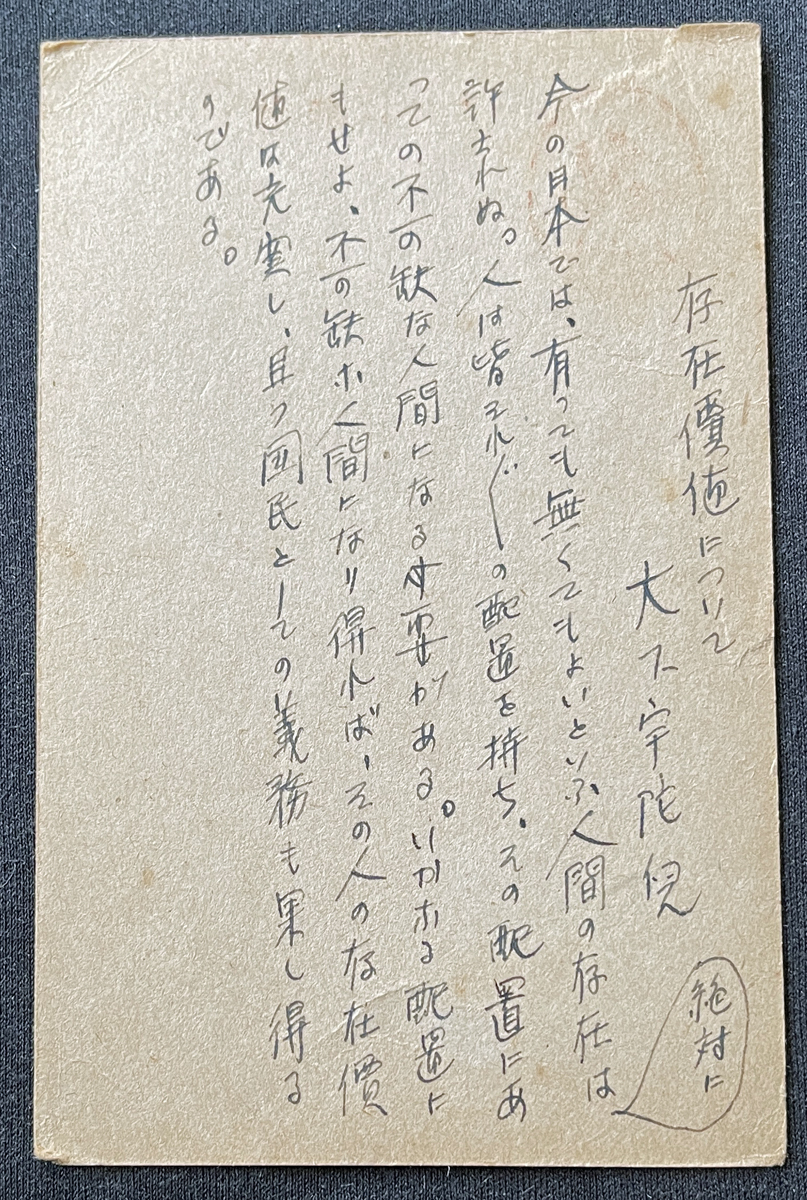 存在價値について
大下宇陀児
今の日本では、有っても無くてもよいといふ人間の存在は
絶対に
許されぬ。人は皆それ〲の配置を持ち、その配置にあ
つての不可缺な人間になる必要がある。いかなる配置に
もせよ、不可缺な人間になり得れば、その人の存在價
値は充実し、且つ国民としての義務も果し得る
のである。